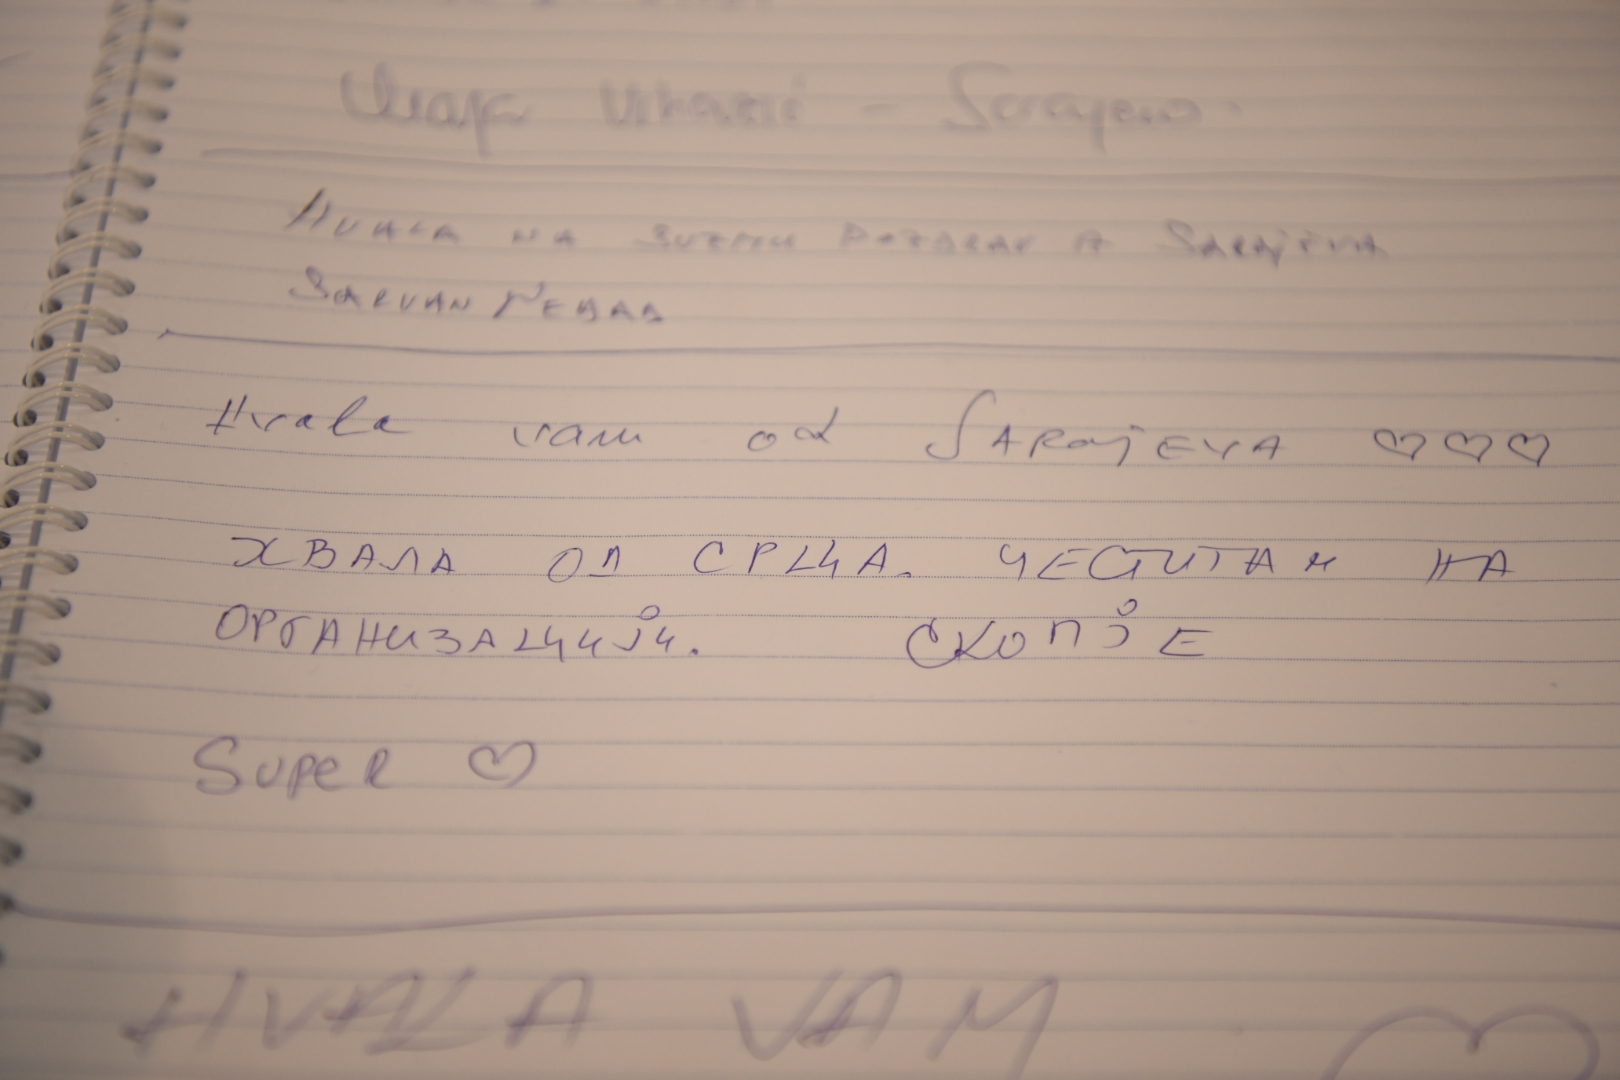 – Sarajevo.
HVALA NA SVEMU POZDRAV IZ SARAJEVA
Hvala vam od SARAJEVA ♡♡♡
ХВАЛА ОД СРЦА. ЧЕСТИТАМ НА
ОРГАНИЗАЦИЈИ. СКОПЈЕ
SUPER ♡
HVALA VAM ♡